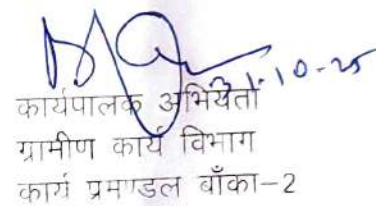 31-10-25
कार्यपालक अभियंता
ग्रामीण कार्य विभाग
कार्य प्रमण्डल बाँका-2